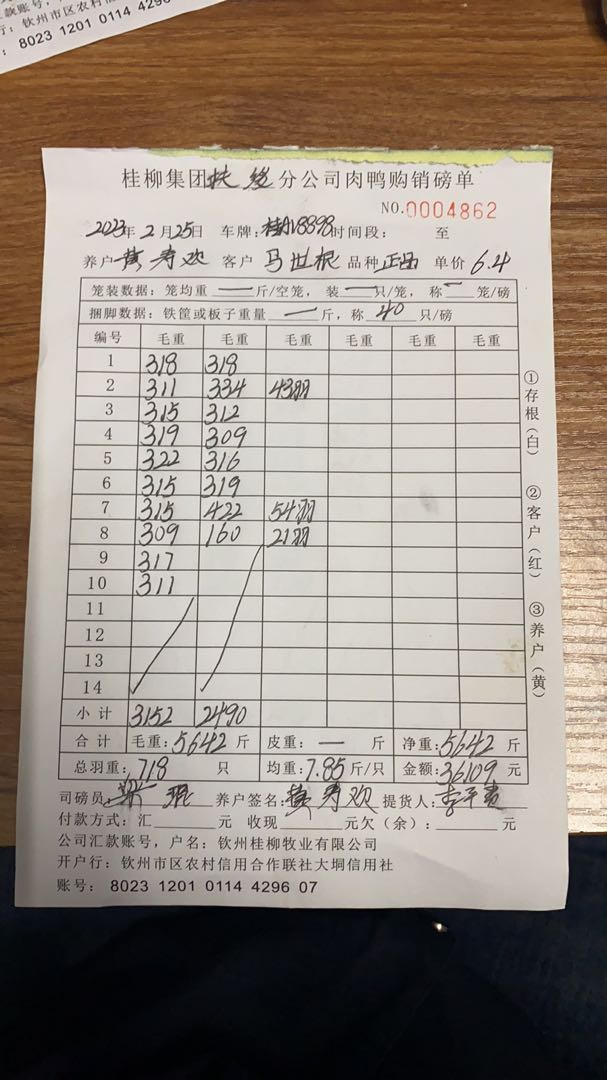 汇款账号,
行: 钦州市区农村信
: 8023 1201 0114 4296
桂柳集团扶绥分公司肉鸭购销磅单
NO.0004862
2023年2月25日 车牌:桂AV8898 时间段: 至
养户 黄寿欢 客户 马世根 品种 正品 单价 6.4
笼装数据: 笼均重 — 斤/空笼, 装 — 只/笼, 称 — 笼/磅
捆脚数据: 铁筐或板子重量 — 斤, 称 40 只/磅
编号 毛重 毛重 毛重 毛重 毛重
1 318 318
2 311 334 43羽
3 315 312
4 319 309
5 322 316
6 315 319
7 315 422 54羽
8 309 160 21羽
9 317
10 311
11
12
13
14
小计 3152 2490
合计 毛重:5642 斤 皮重: — 斤 净重:5642 斤
总羽重: 718 只 均重:7.85 斤/只 金额:36109 元
司磅员: 养户签名: 黄寿欢 提货人:
付款方式: 汇 元 收现 元欠(余): 元
公司汇款账号, 户名: 钦州桂柳牧业有限公司
开户行: 钦州市区农村信用合作联社大垌信用社
账号: 8023 1201 0114 4296 07
①存根(白) ②客户(红) ③养户(黄)